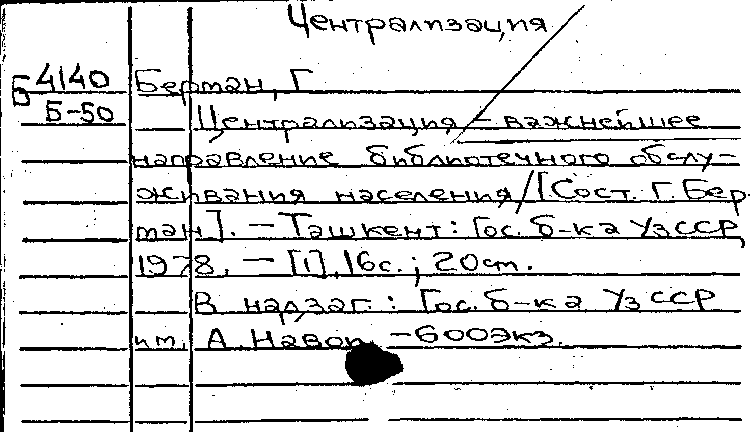 Централизация
Б 4140 Берман, Г
Б-50 Централизация - важнейшее
направление библиотечного обслу-
живания населения/[Сост. Г. Бер-
ман]. - Ташкент: Гос. б-ка УзССР,
1978. - [1], 16с.; 20см.
В надзаг.: Гос. б-ка УзССР
им. А. Навои. - 600экз.